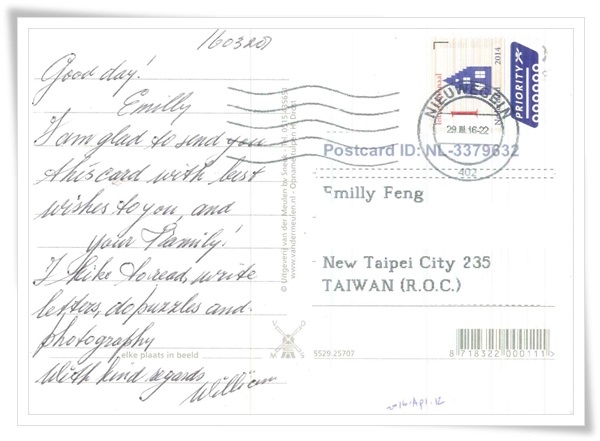 160320
Good day!
Emilly
I am glad to send you
this card with best
wishes to you, and
your Family!
I like to read, write
letters, do puzzles and
photography
With kind regards
William
elke plaats in beeld
© Uitgeverij van der Meulen bv Sneek
www.vandermeulen.nl
2014
PRIORITY
NIEUWEGEIN
29.III.16-22
402
Postcard ID: NL-3379632
Emilly Feng
New Taipei City 235
TAIWAN (R.O.C.)
5529.25707
8 718322 000111